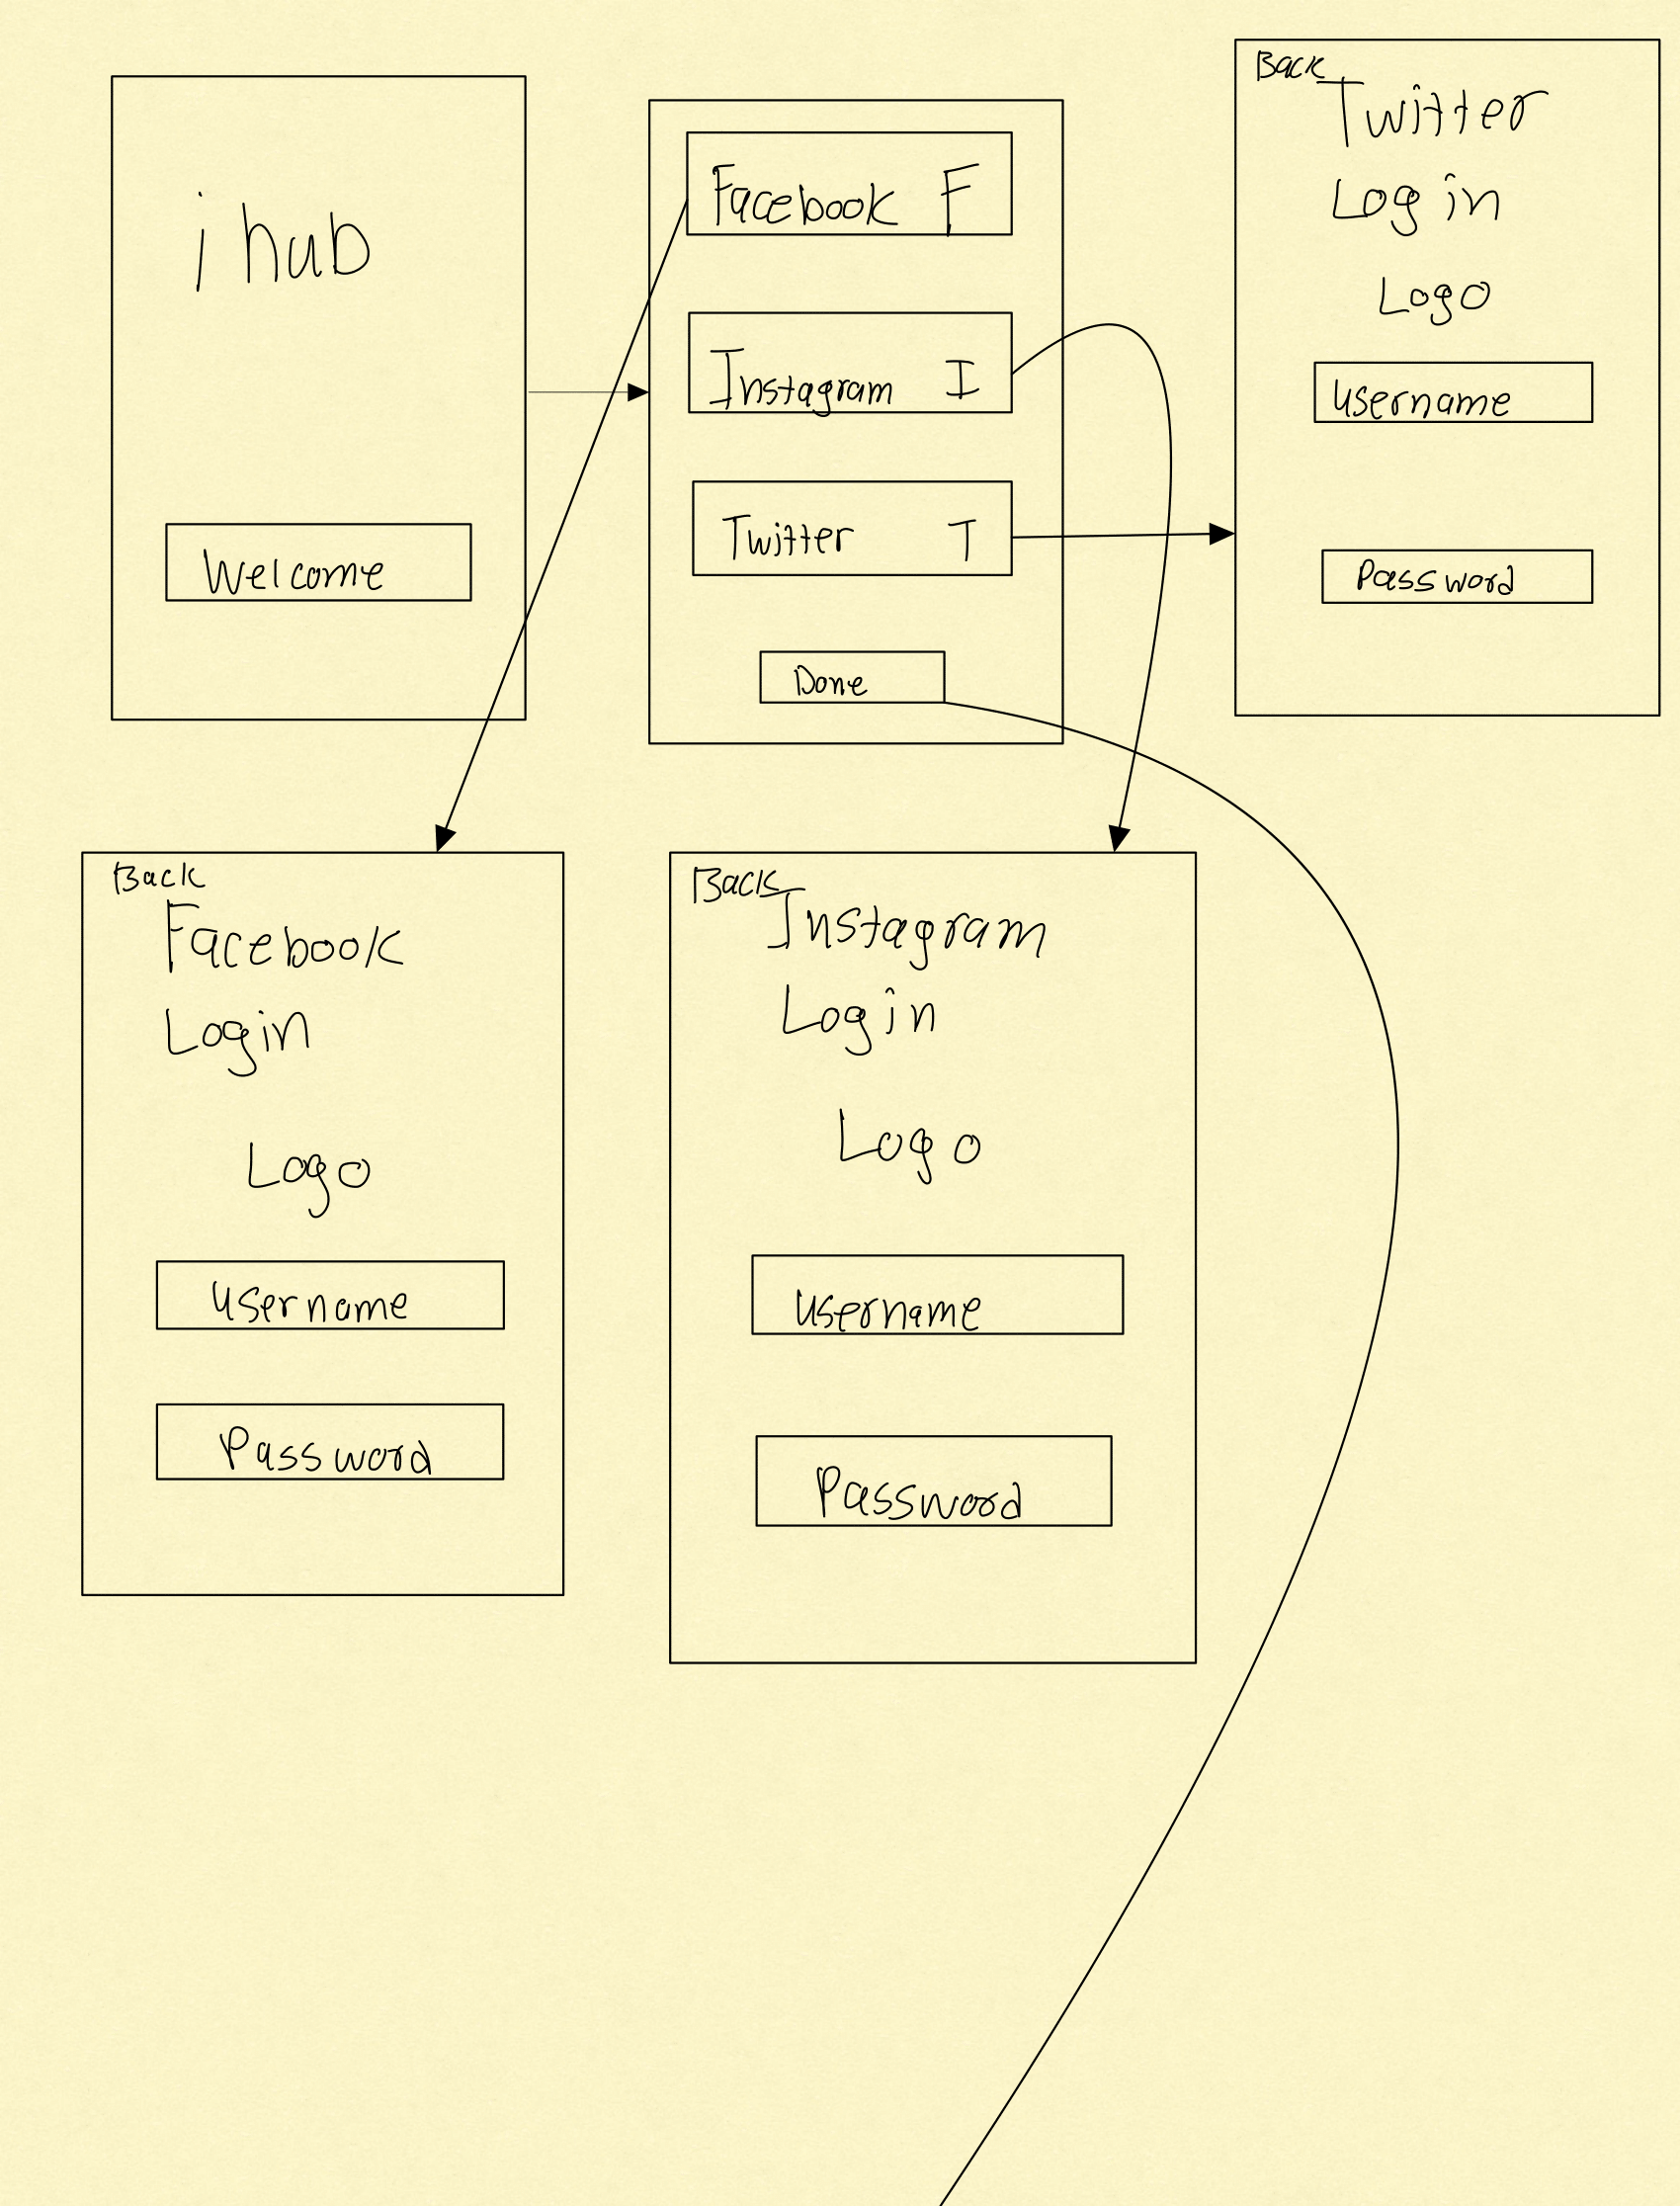 i hub
Welcome
Facebook F
Instagram I
Twitter T
Done
Back
Twitter
Login
Logo
Username
Password
Back
Facebook
Login
Logo
Username
Password
Back
Instagram
Login
Logo
Username
Password